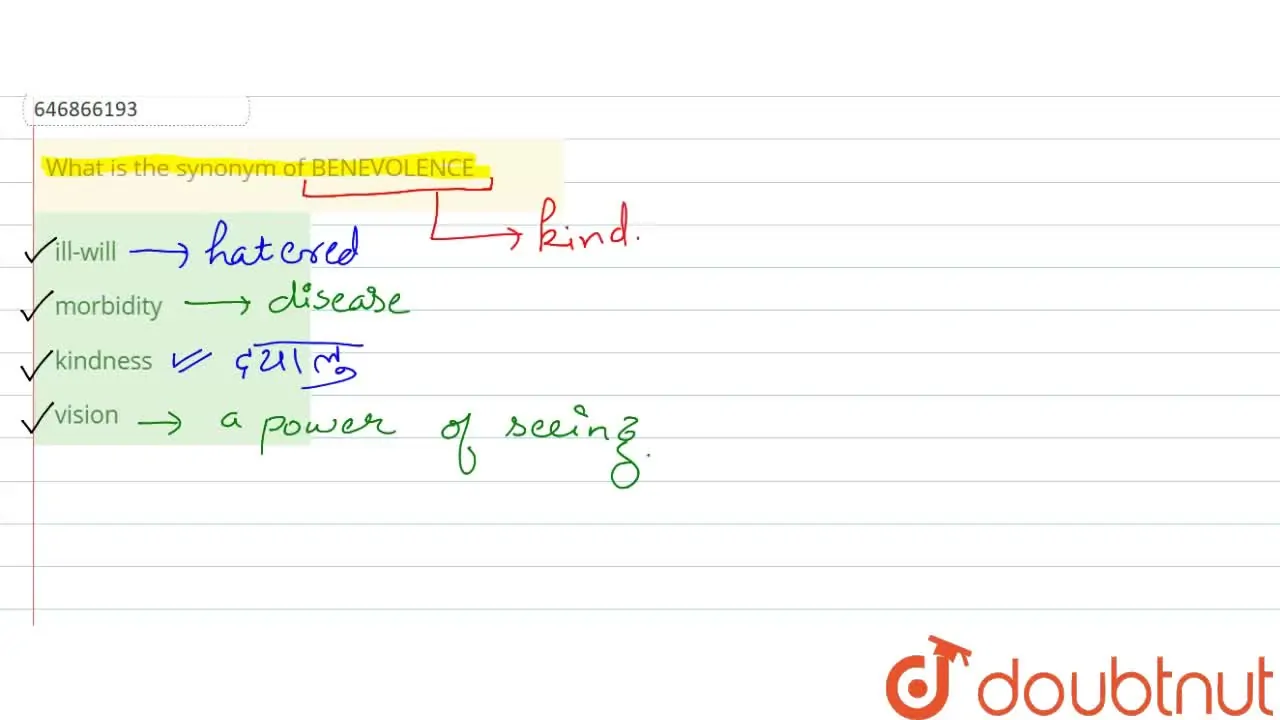 646866193
What is the synonym of BENEVOLENCE
kind.
ill-will → hatered
morbidity → disease
kindness दयालु
vision → a power of seeing.
doubtnut